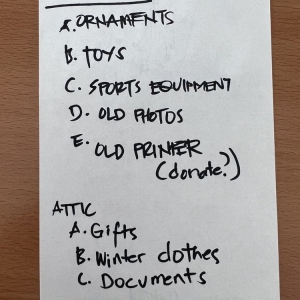 A. ORNAMENTS
B. TOYS
C. SPORTS EQUIPMENT
D. OLD PHOTOS
E. OLD PRINTER
(donate?)
ATTIC
A. Gifts
B. Winter clothes
C. Documents